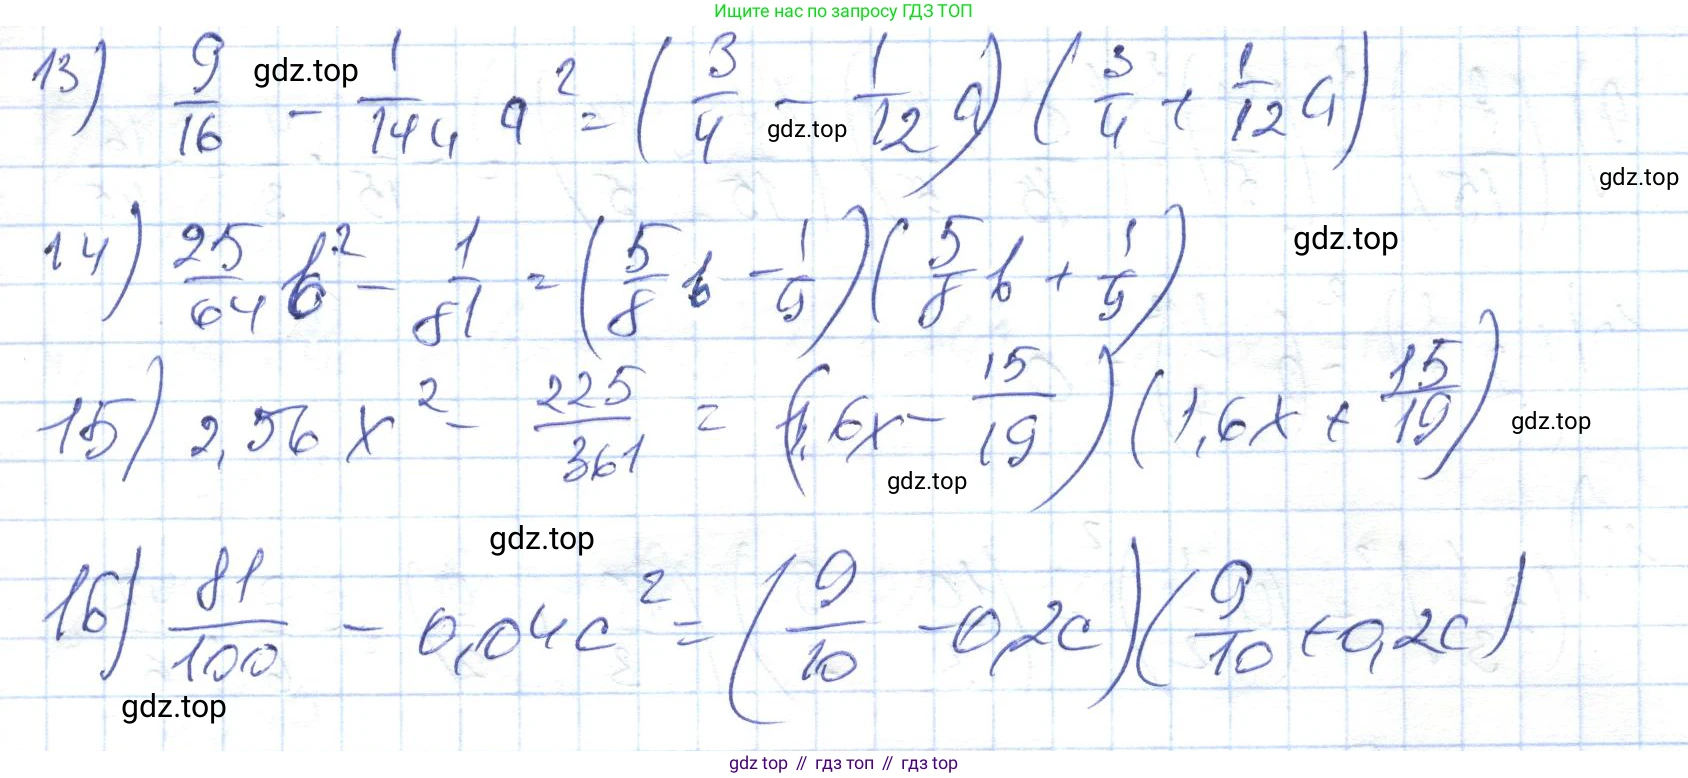 Ищите нас по запросу ГДЗ ТОП
13) 9/16 - 1/144 a² = (3/4 - 1/12 a) (3/4 + 1/12 a)
gdz.top
gdz.top
gdz.top
14) 25/64 b² - 1/81 = (5/8 b - 1/9) (5/8 b + 1/9)
gdz.top
15) 2,56 x² - 225/361 = (1,6x - 15/19) (1,6x + 15/19)
gdz.top
gdz.top
gdz.top
16) 81/100 - 0,04c² = (9/10 - 0,2c) (9/10 + 0,2c)
gdz.top
gdz top // гдз топ // гдз top